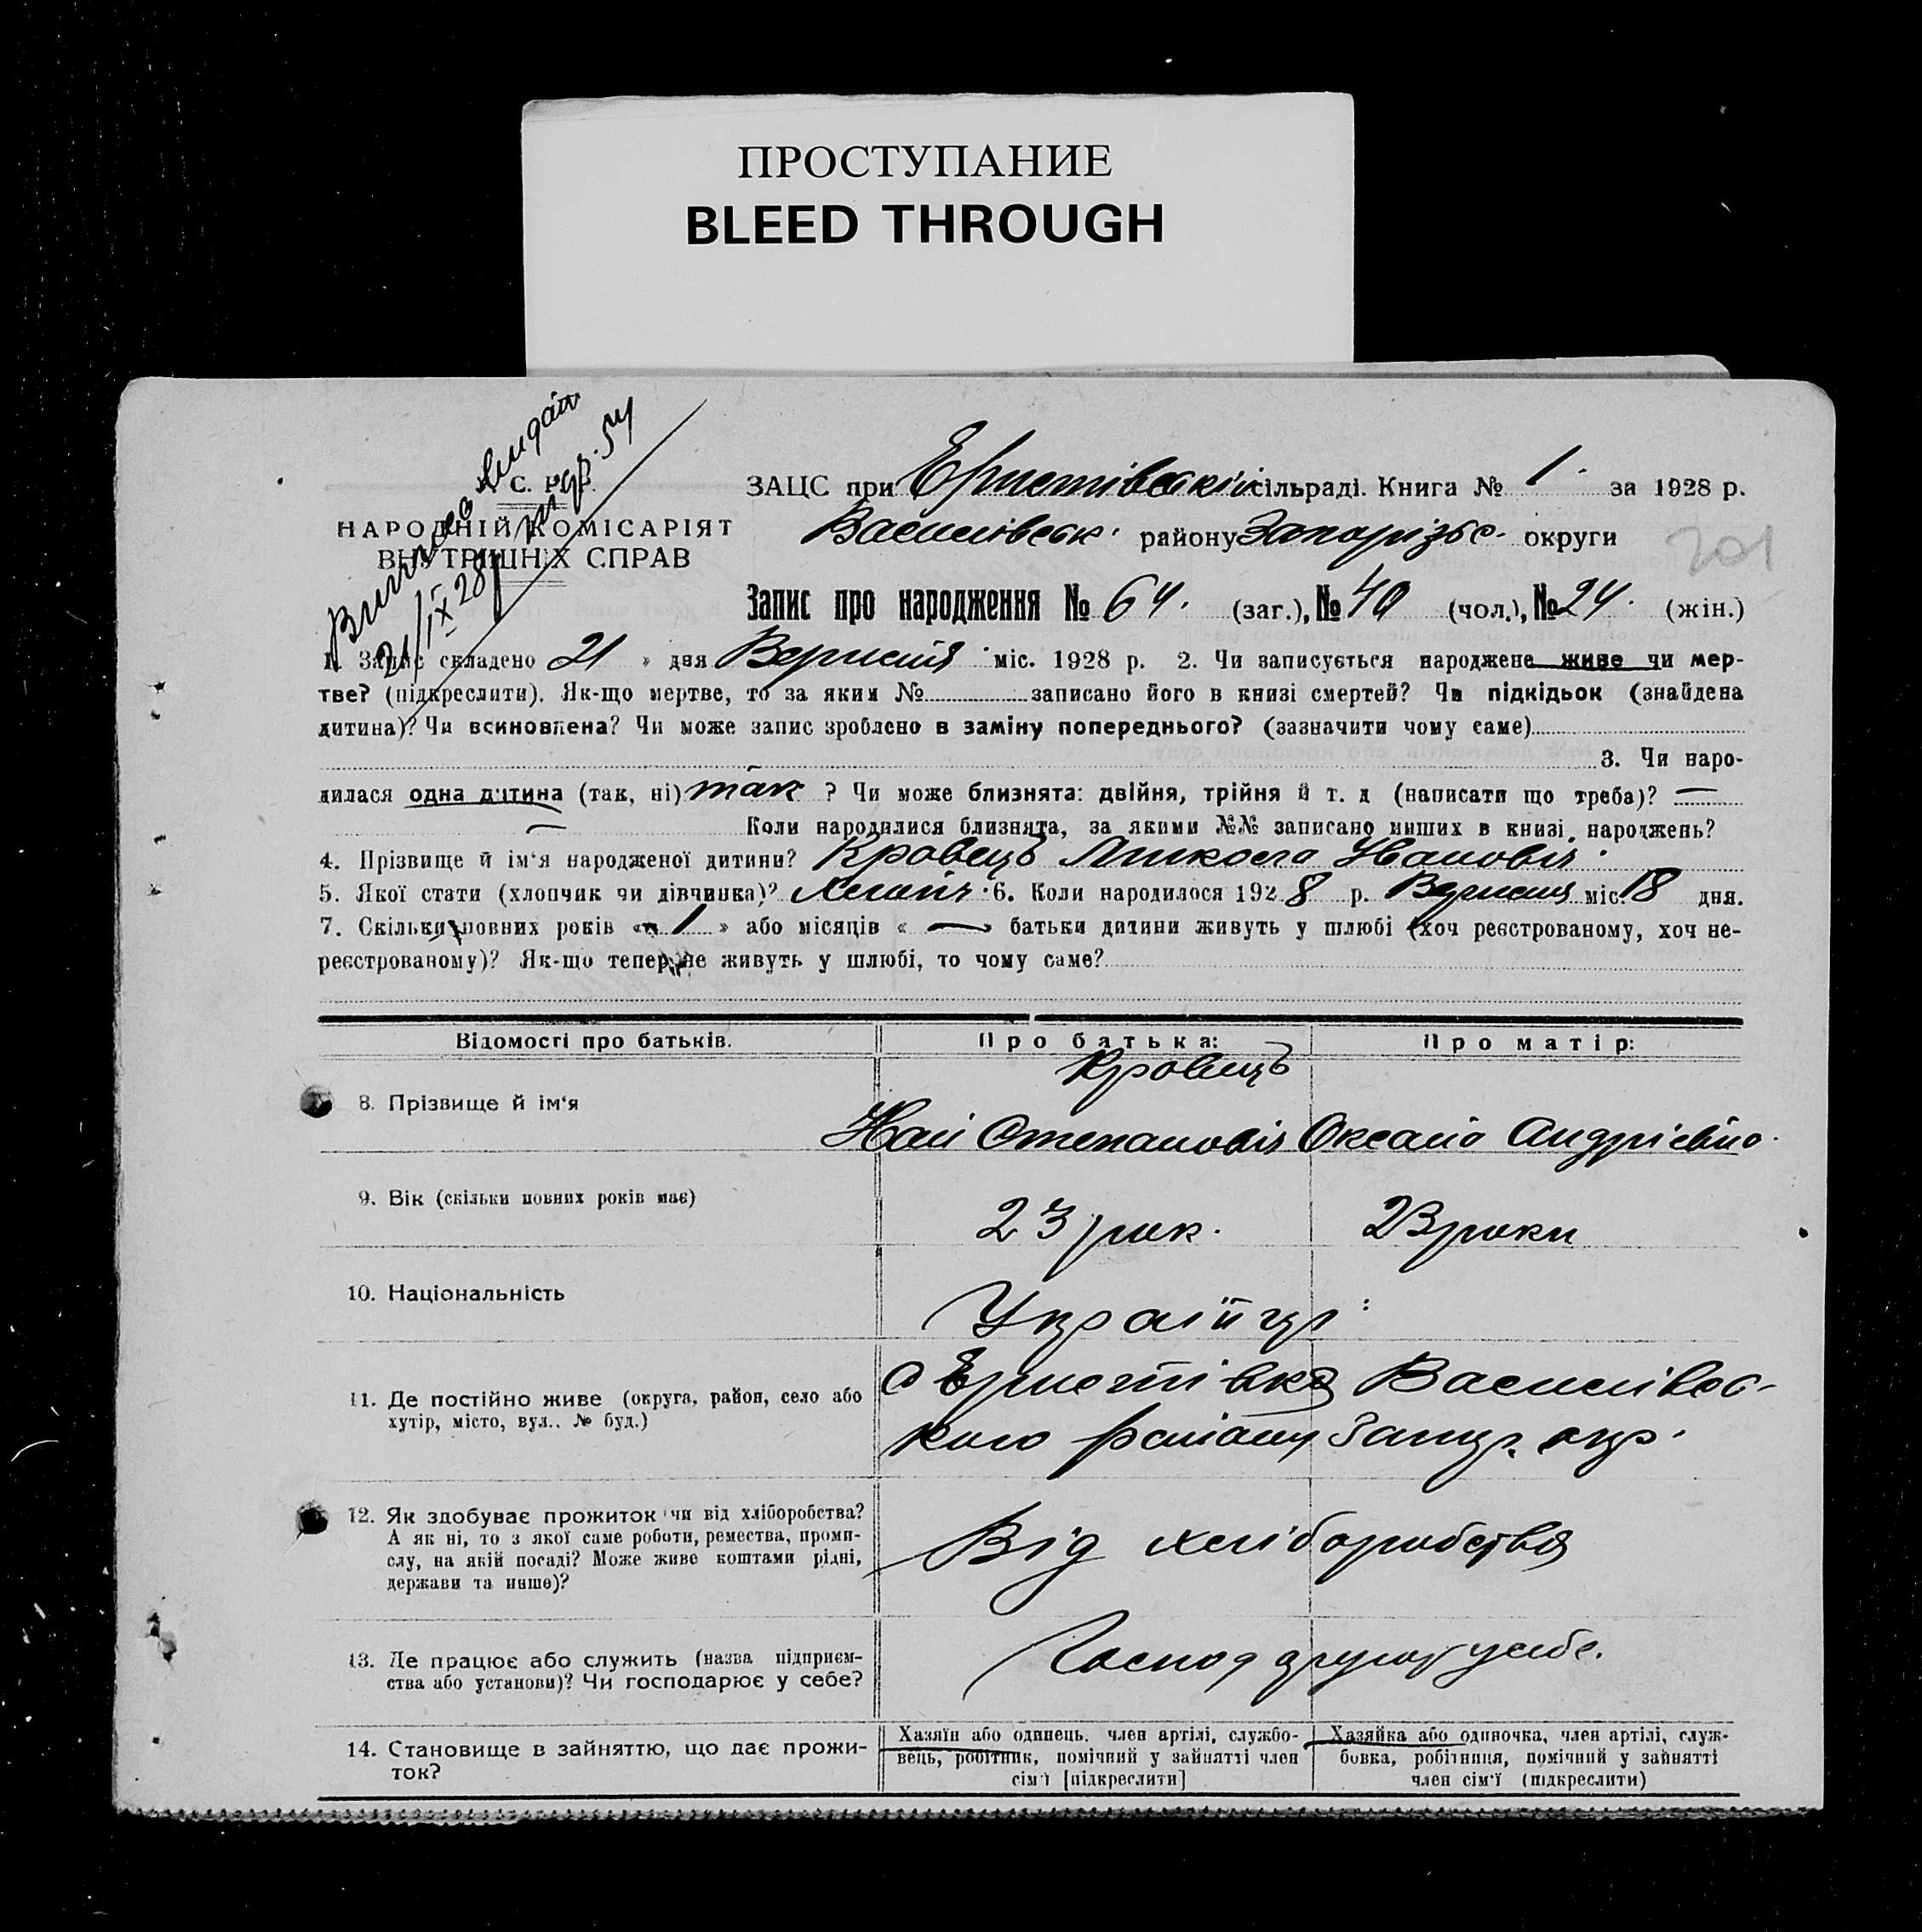 ПРОСТУПАНИЕ
BLEED THROUGH
Виписка видан
21/IX 28
У. С. Р. Р.
НАРОДНІЙ КОМІСАРІЯТ
ВНУТРІШНІХ СПРАВ
ЗАЦС при Ернетівській сільраді. Книга № 1. за 1928 р.
Василівськ. району Запорізьс. округи
201
Запис про народження № 64. (заг.), № 40 (чол.), № 24. (жін.)
1. Запис складено 21 » дня Вересня міс. 1928 р. 2. Чи записується народжене живе чи мер-
тве? (підкреслити). Як-що мертве, то за яким № записано його в книзі смертей? Чи підкідьок (знайдена
дитина)? Чи всиновлена? Чи може запис зроблено в заміну попереднього? (зазначити чому саме)
3. Чи наро-
дилася одна дитина (так, ні) так ? Чи може близнята: двійня, трійня й т. д (написати що треба)? —
— Коли народилися близнята, за якими №№ записано инших в книзі народжень?
4. Прізвище й ім‘я народженої дитини? Кровець Микола Іванович.
5. Якої стати (хлопчик чи дівчинка)? Хлопч. 6. Коли народилося 1928 р. Вересня міс. 18 дня.
7. Скільки повних років « 1 » або місяців « — » батьки дитини живуть у шлюбі (хоч реєстрованому, хоч не-
реєстрованому)? Як-що тепер не живуть у шлюбі, то чому саме?
Відомості про батьків. Про батька: Про матір:
Кровець
8. Прізвище й ім‘я
Іван Степанович Оксана Андрієвна.
9. Вік (скільки повних років має)
23 рок. 23 роки
10. Національність
Українці
11. Де постійно живе (округа, район, село або
хутір, місто, вул.. № буд.)
с Ернетівка Василівсь-
кого району Запор. окр.
12. Як здобуває прожиток чи від хліборобства?
А як ні, то з якої саме роботи, ремества, проми-
слу, на якій посаді? Може живе коштами рідні,
держави та инше)?
Від хліборобства
13. Де працює або служить (назва підприєм-
ства або установи)? Чи господарює у себе?
у себе.
14. Становище в зайняттю, що дає прожи-
ток?
Хазяїн або одинець, член артілі, службо-
вець, робітник, помічний у зайнятті член
сім‘ї [підкреслити]
Хазяйка або одиночка, член артілі, служ-
бовка, робітниця, помічний у зайнятті
член сім‘ї (підкреслити)